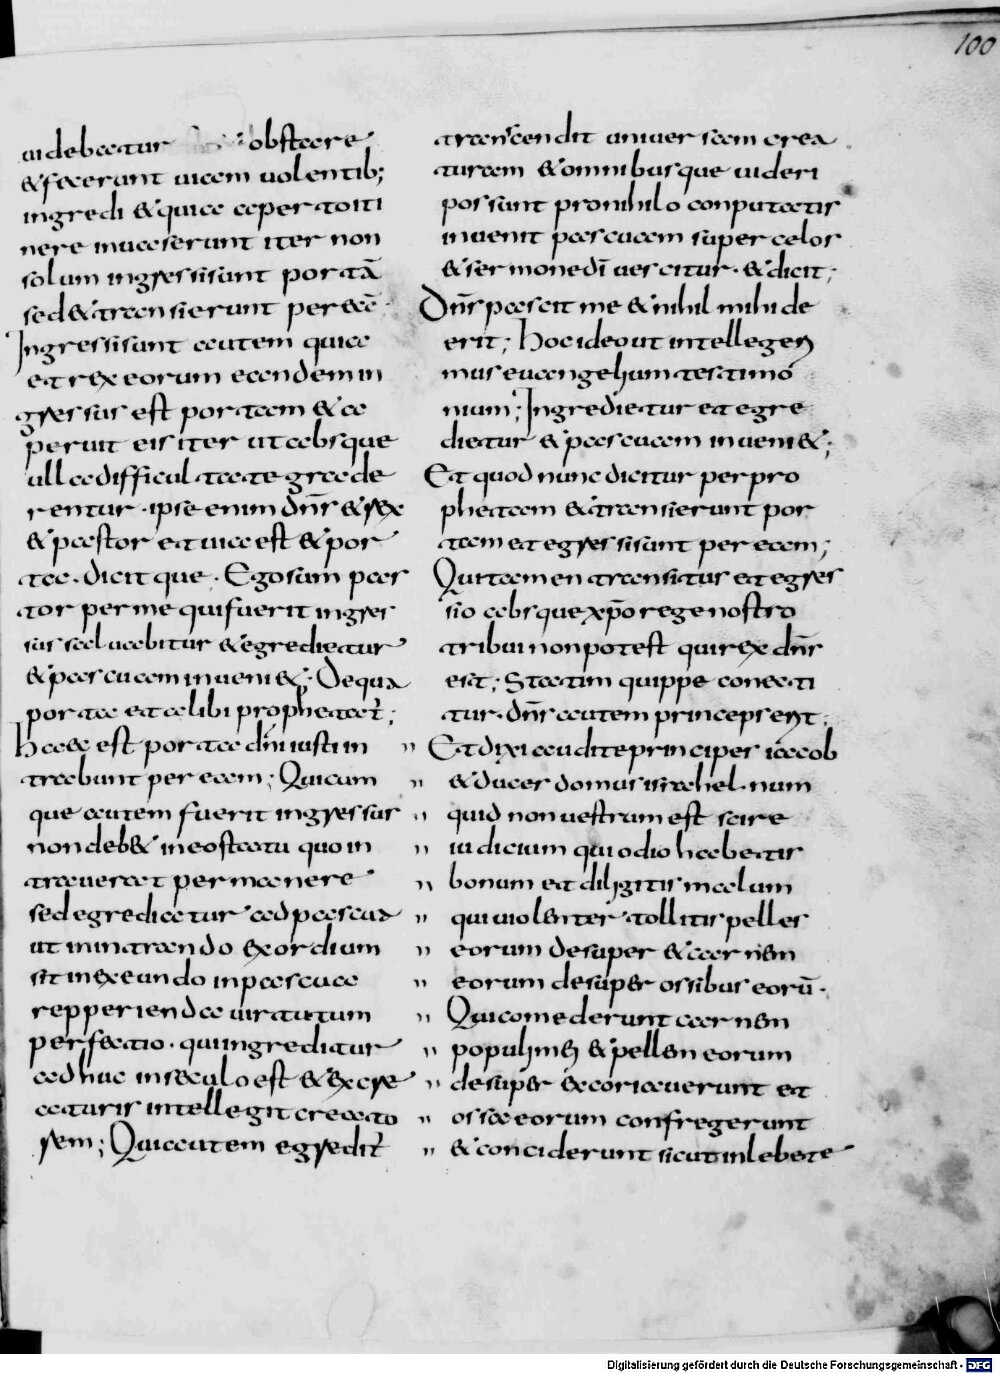 100
uidebatur obstare
& fecerant uiam uolentib;
ingredi & quia aperto iti
nere inuaserunt iter non
solum ingressi sunt portā
sed & transierunt per eā·
Ingressi sunt autem quia
et rex eorum eandem in
gressus est portam & a
peruit eis iter ut absque
ulla difficultate grade
rentur· ipse enim dn̄s & rex
& pastor et uia est & por
ta· dicitque· Ego sum pas
tor per me qui fuerit ingres
sus saluabitur & egredietur
& pascuam inueni&· De qua
porta et alibi prophetat̄;
Haec est porta dn̄i iusti in
trabunt per eam; Quicum
que autem fuerit ingressus
non deb& in eo statu quo in
trauerat permanere
sed egrediatur ad pascua
ut in intrando exordium
sit in exeundo in pascua
repperienda uirtutum
perfectio· qui ingreditur
adhuc in saeculo est & ex cre
aturis intellegit creato
rem; Qui autem egredit̄
transcendit uniuersam crea
turam & omnibusque uideri
possunt pro nihilo conputatis
inuenit pascuam super celos
& sermone dī uescitur· & dicit;
Dn̄s pascit me & nihil mihi de
erit; Hoc ideo ut intellegen
mus euangelium testimo
nium; Ingredietur et egre
dietur & pascuam inueni&;
Et quod nunc dicitur per pro
phetam & transierunt por
tam et egressi sunt per eam;
Qui tamen transitus et egres
sio absque xp̄o rege nostro
tribui non potest qui rex dn̄s
est; Statim quippe conecti
tur· dn̄s autem princeps est;
" Et dixi audite principes iacob
" & duces domus israhel· num
" quid non uestrum est scire
" iudicium qui odio habetis
" bonum et diligitis malum
" qui uiolenter tollitis pelles
" eorum desuper & carnem
" eorum desuper ossibus eorū·
" Qui comederunt carnem
" populi mei & pellem eorum
" desuper excoriauerunt et
" ossa eorum confregerunt
" & conciderunt sicut in lebete
Digitalisierung gefördert durch die Deutsche Forschungsgemeinschaft - DFG